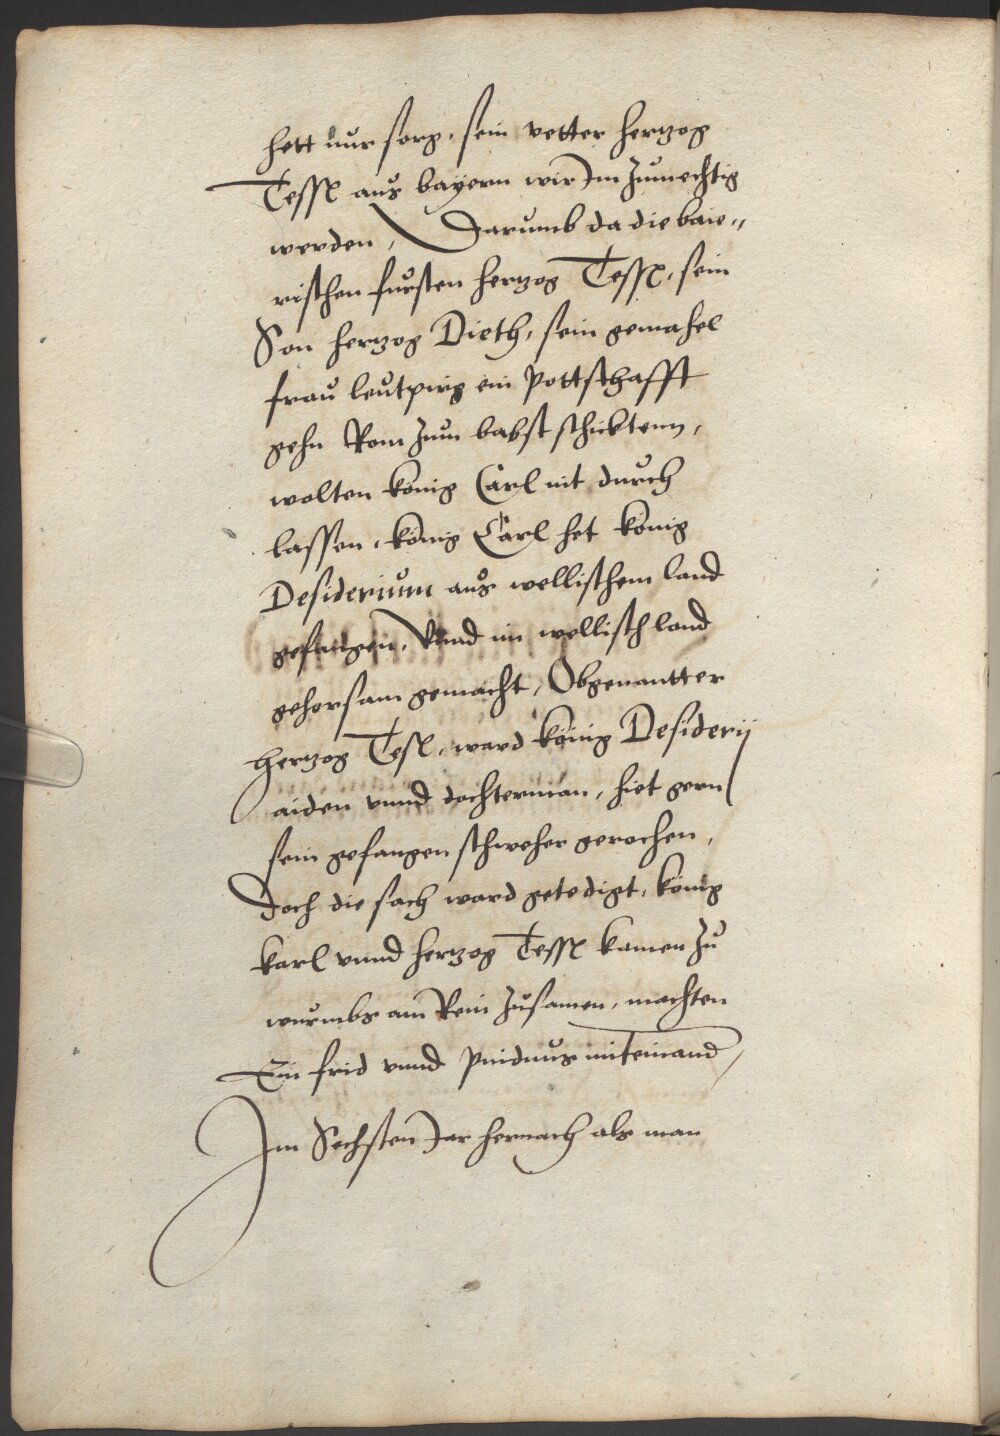 hett nur sorg, sein vetter hertzog
Tessl aus bayern wir Im zumechtig
werden, Darumb da die baie„
rischen fursten hertzog Tessl, sein
Son hertzog Dieth, sein gemahel
frau leutpirg ein Pottschafft
gehn Rom zum babst schicktenn,
wolten konig Carl nit durch
lassen, konig Carl het konig
Desiderium aus wellischem land
gefangen, Vnnd im wellisch land
gehorsam gemacht, Obgenantter
hertzog Tesl, ward konig Desiderij
aiden vnnd dochterman, hiet gern
sein gefangen schweher gerochen,
Doch die sach ward getedigt, konig
karl vnnd hertzog Tessl kamen zu
wurmbs am Rein zusamen, machten
Ein frid vnnd Pindnus miteinand,
Im Sechsten Jar hernach als man